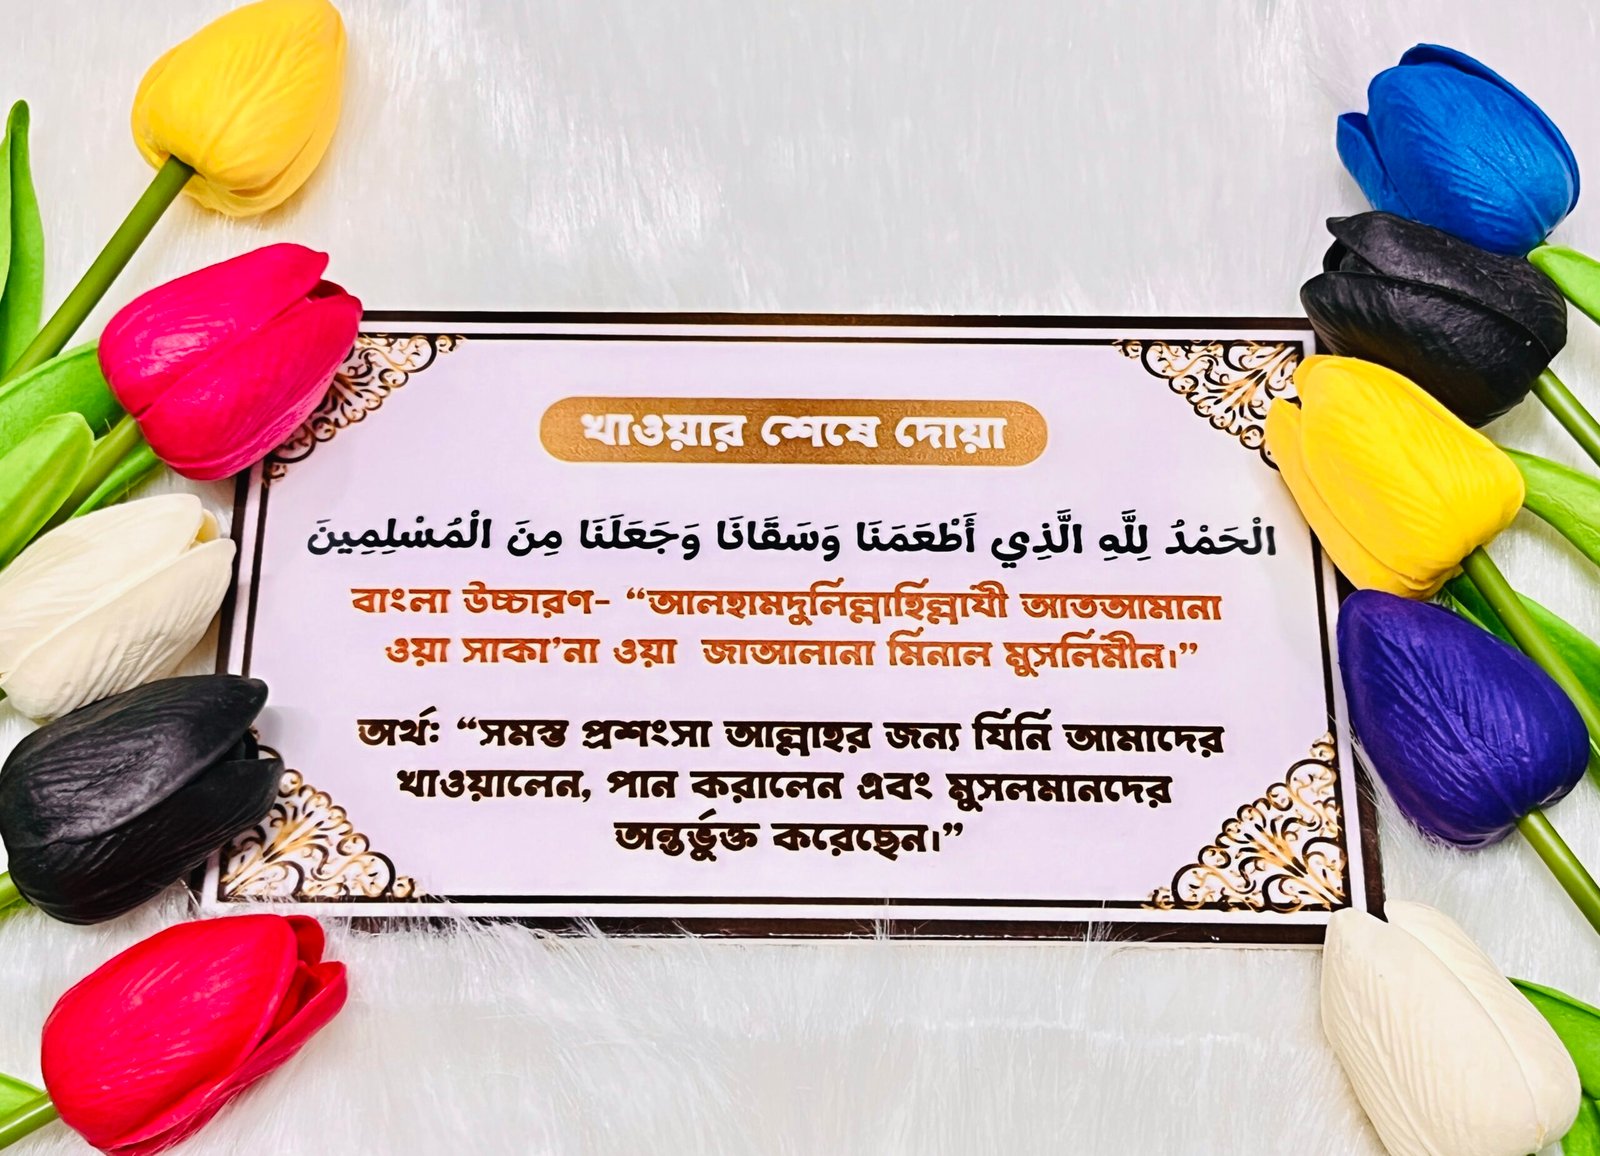 খাওয়ার শেষে দোয়া
الْحَمْدُ لِلَّهِ الَّذِي أَطْعَمَنَا وَسَقَانَا وَجَعَلَنَا مِنَ الْمُسْلِمِينَ
বাংলা উচ্চারণ- “আলহামদুলিল্লাহিল্লাযী আতআমানা
ওয়া সাকা’না ওয়া জাআলানা মিনাল মুসলিমীন।”
অর্থ: “সমস্ত প্রশংসা আল্লাহর জন্য যিনি আমাদের
খাওয়ালেন, পান করালেন এবং মুসলমানদের
অন্তর্ভুক্ত করেছেন।”